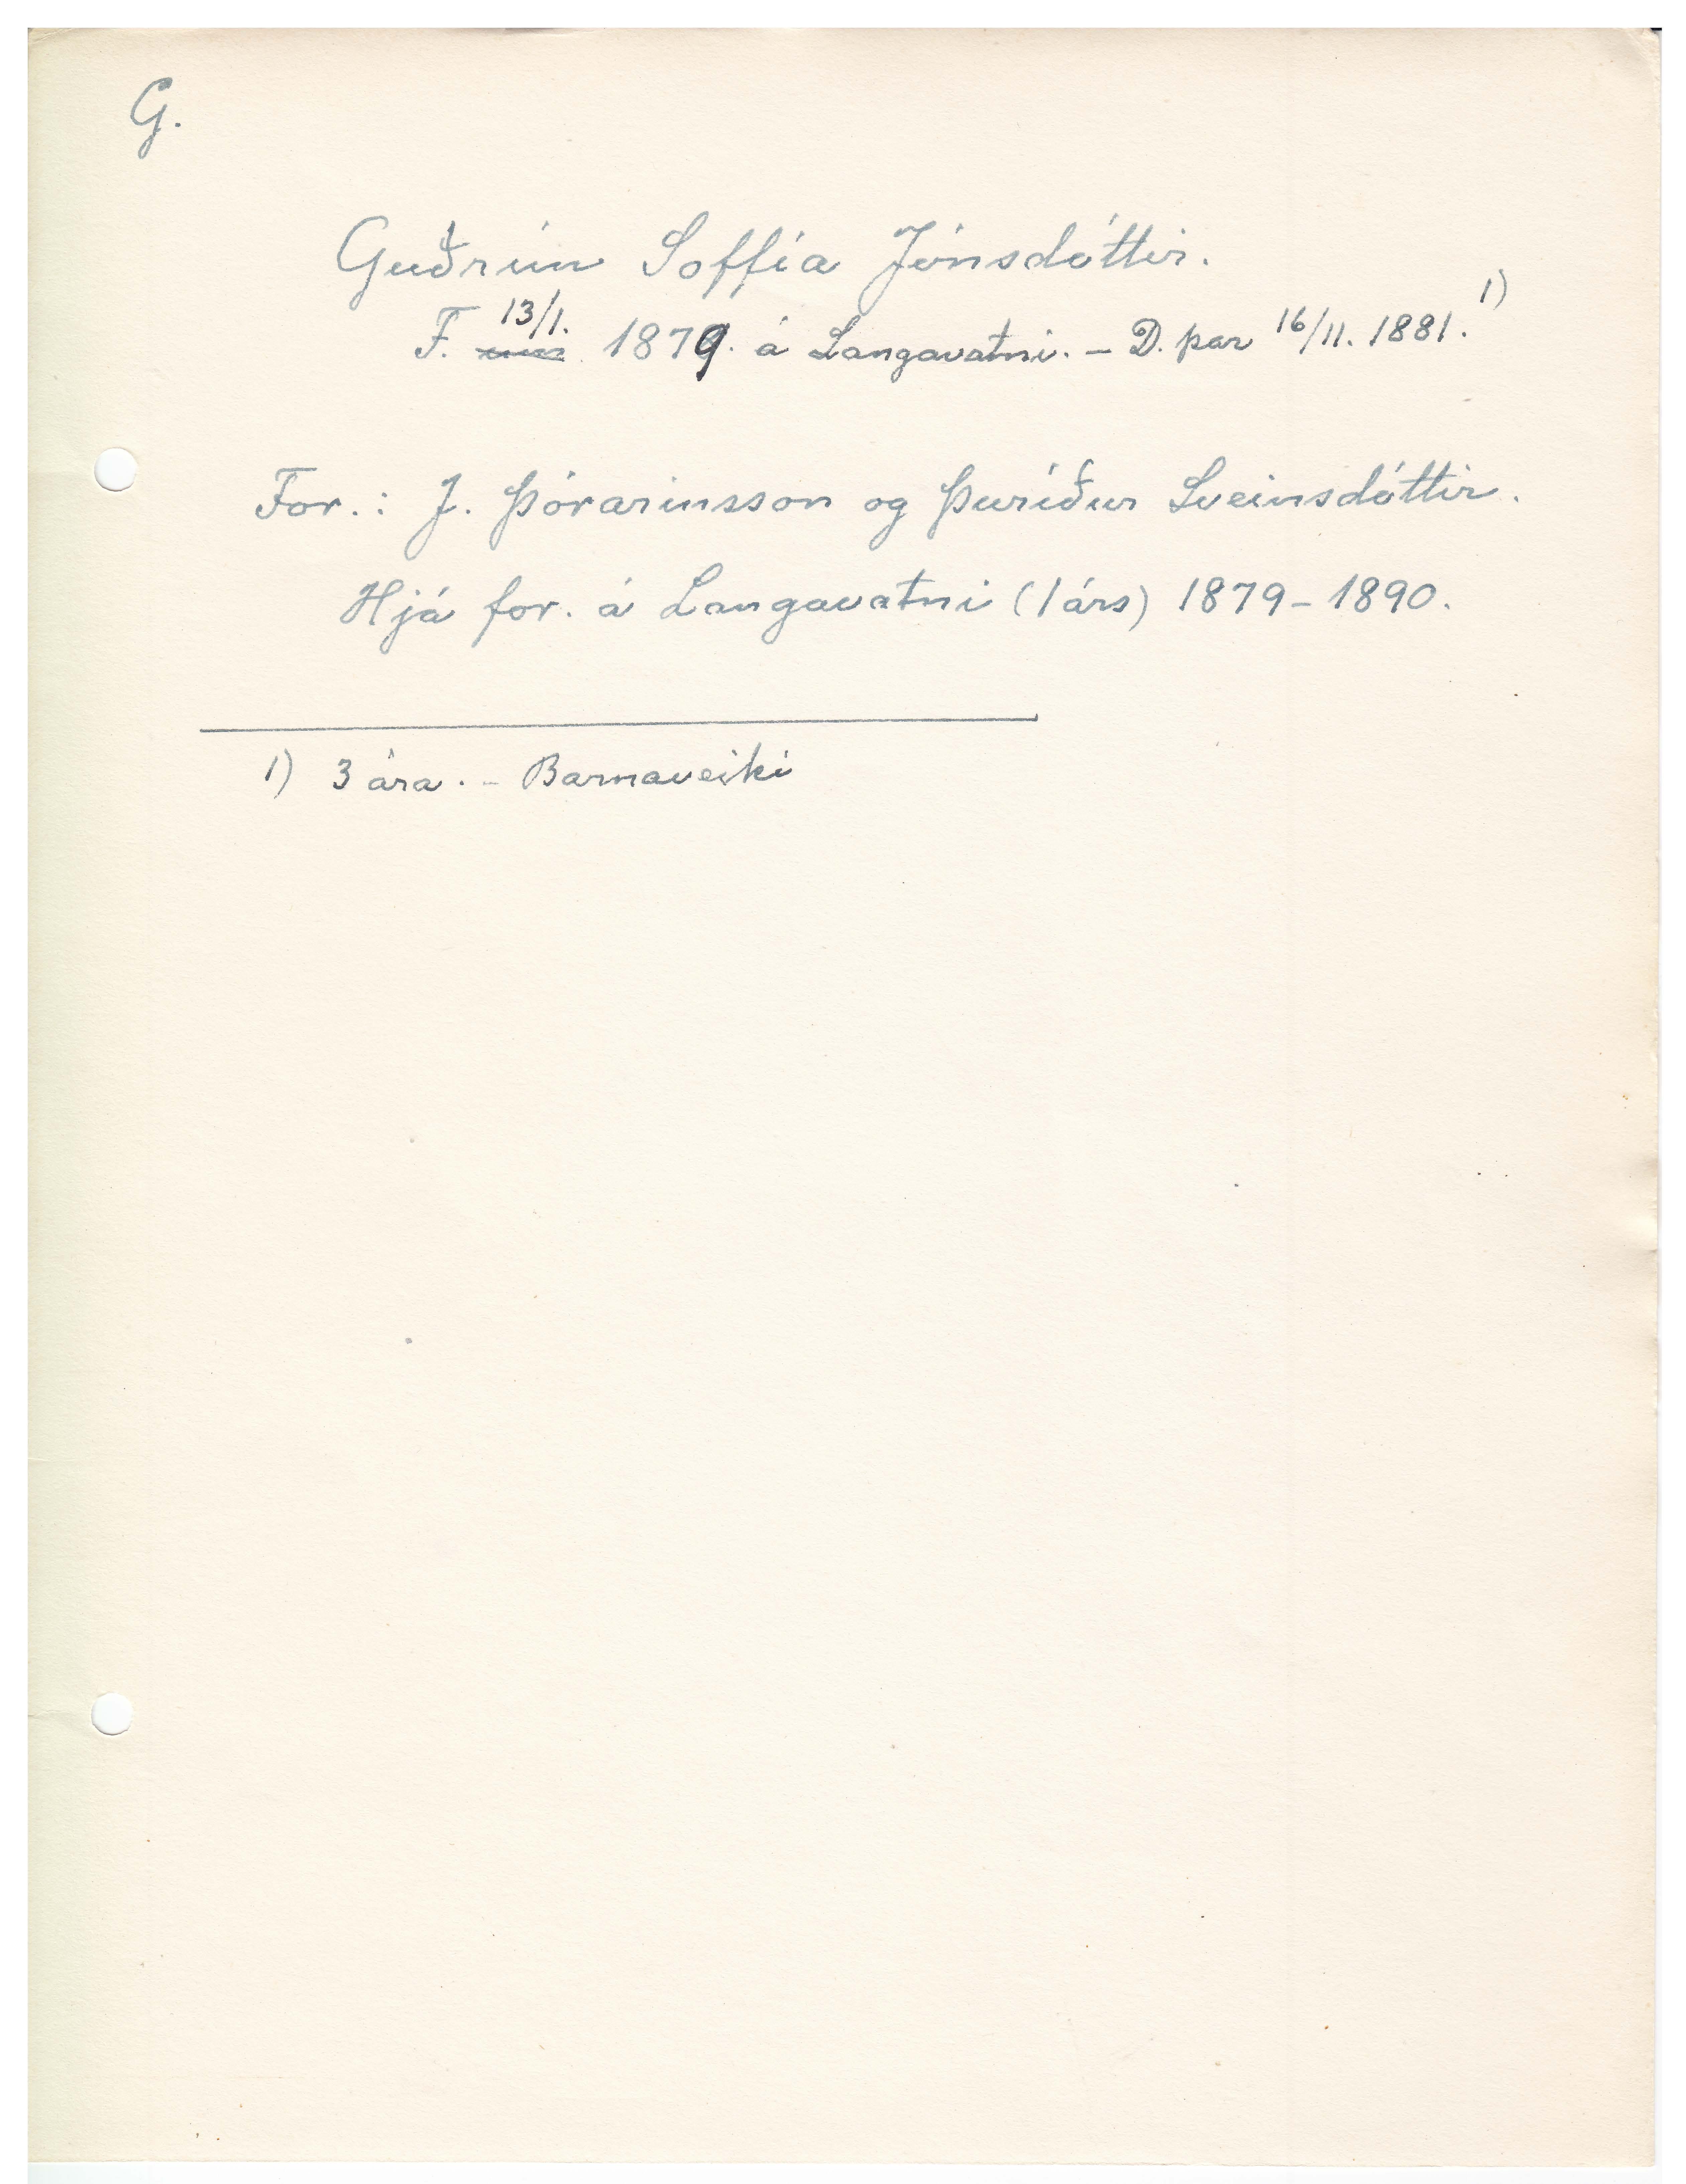 G.
Guðrún Soffía Jónsdóttir.
F. 13/1. 1879. á Langavatni. – D. þar 16/11. 1881. 1)
For.: J. Þórarinsson og Þuríður Sveinsdóttir.
Hjá for. á Langavatni (1 árs) 1879–1890.
1) 3 ára. – Barnaveiki